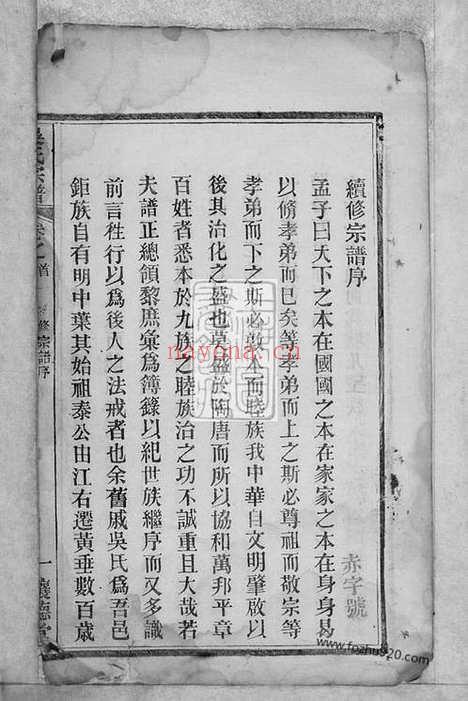 續修宗譜序
孟子曰天下之本在國國之本在家家之本在身身曷
以脩孝弟而已矣等孝弟而上之斯必尊祖而敬宗等
孝弟而下之斯必敦本而睦族我中華自文明肇啟以
後其治化之盛也莫盛於陶唐而所以協和萬邦平章
百姓者悉本於九族之睦族治之功不誠重且大哉若
夫譜正總領黎庶彙爲簿籙以紀世族繼序而又多識
前言徃行以爲後人之法戒者也余舊戚吳氏爲吾邑
鉅族自有明中葉其始祖泰公由江右遷黃垂數百歲
赤字號
氏宗譜
首
修宗譜序
一
nayona.cn
www.fozhu920.com